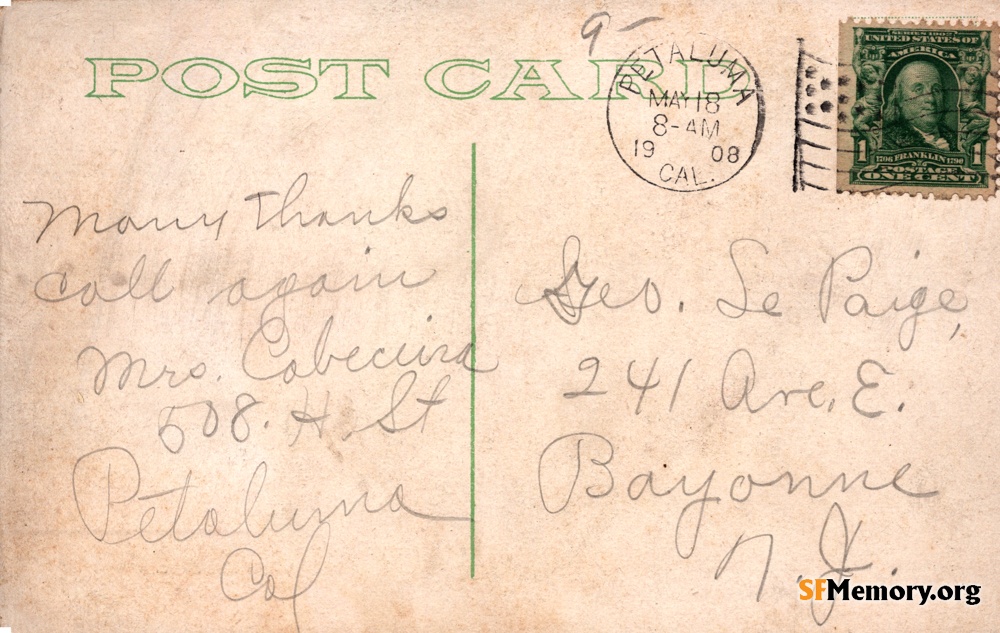 9-
POST CARD
PETALUMA
MAY 18
8-AM
19 08
CAL.
SERIES 1902
UNITED STATES OF
AMERICA
1 1
1706 FRANKLIN 1790
POSTAGE
ONE CENT
Many thanks
call again
Mrs.
508. H. St
Petaluma
Cal
Geo. Le Paige,
241 Ave. E.
Bayonne
N.J.
SFMemory.org